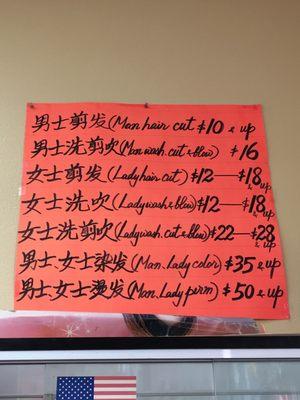 男士剪发(Man hair cut $10 & up
男士洗剪吹(Man wash. cut & blow) $16
女士剪发(Lady hair cut) $12—$18 & up
女士洗吹(Lady wash & blow) $12—$18 & up
女士洗剪吹(Lady wash. cut & blow) $22—$28 & up
男士.女士染发(Man. Lady color) $35 & up
男士.女士烫发(Man. Lady perm) $50 & up